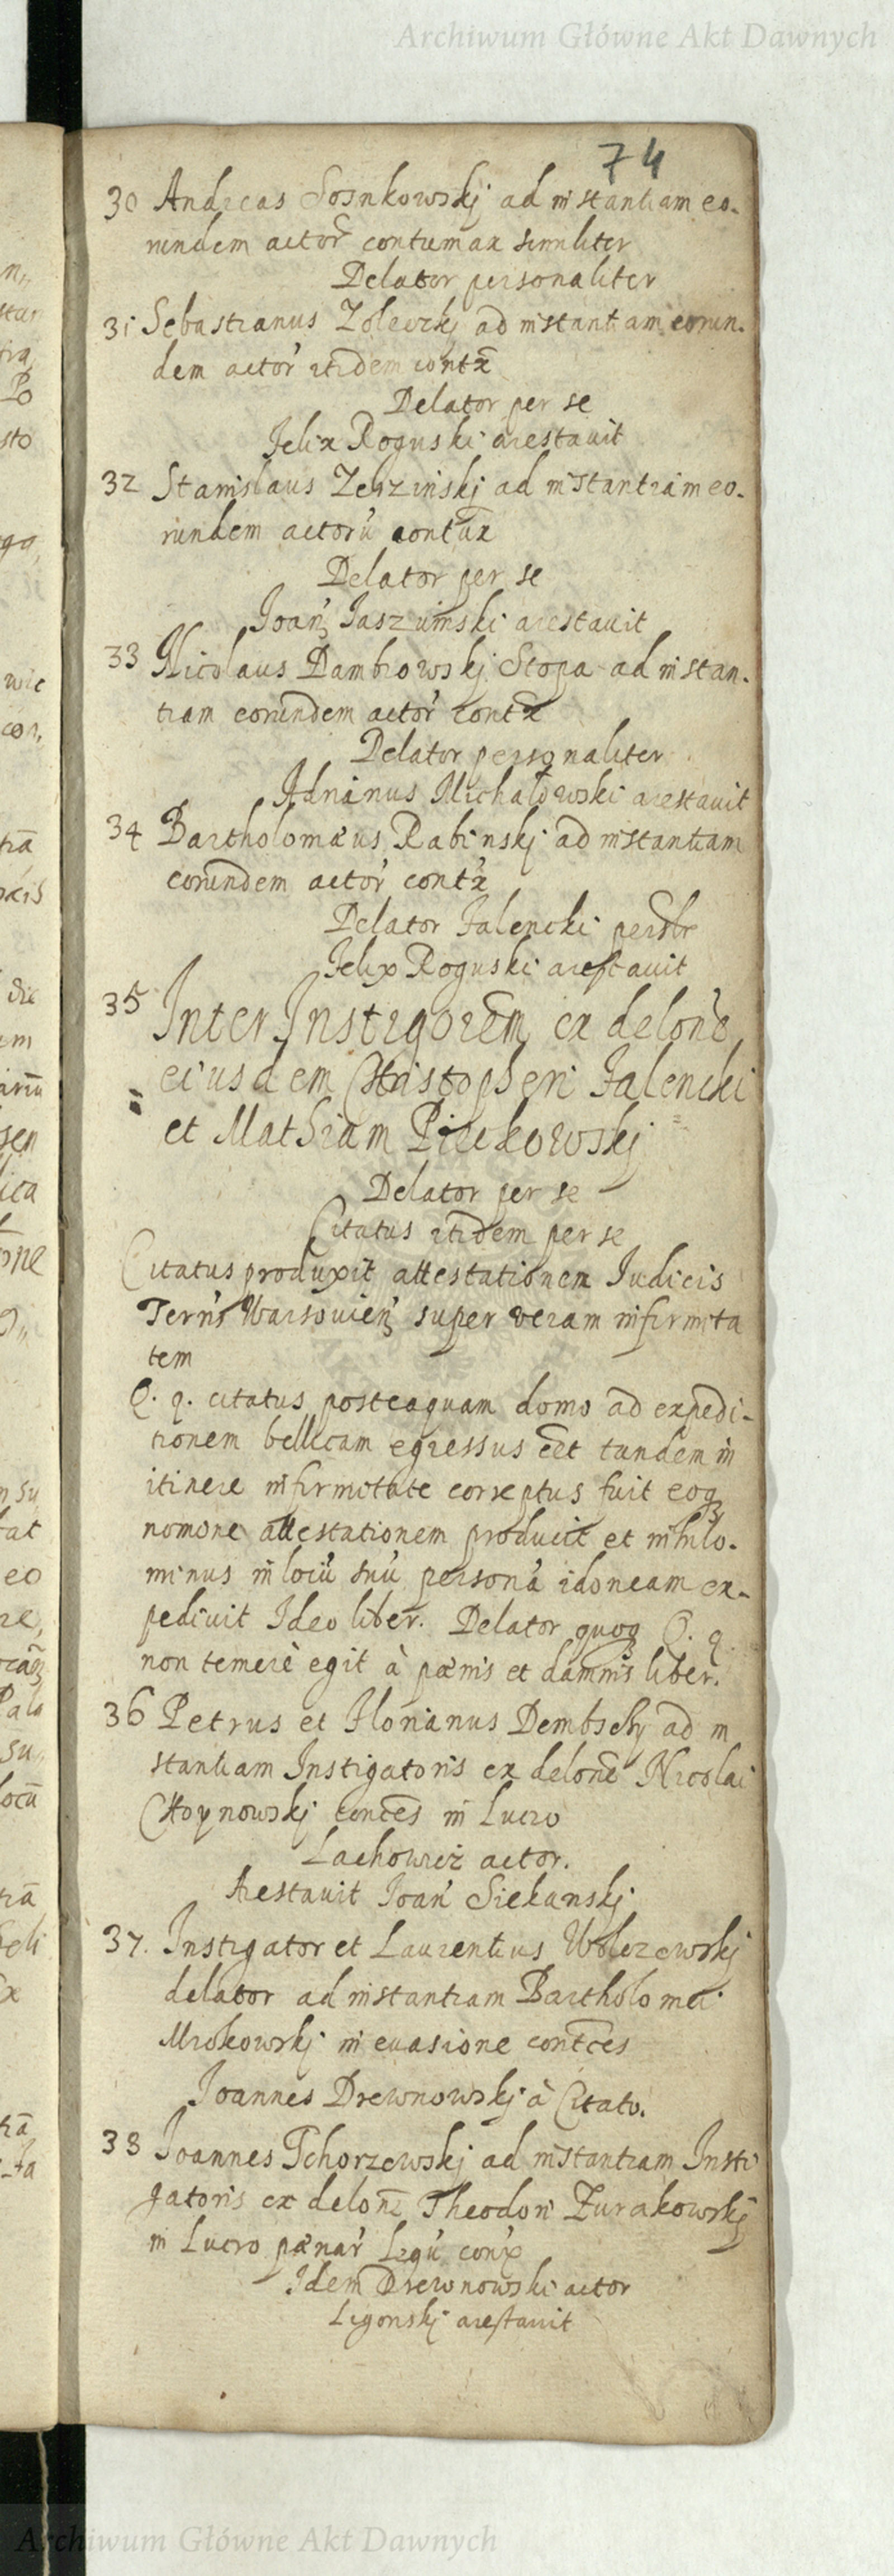 Archiwum Główne Akt Dawnych
74
30 Andreas Sosnkowskj ad instantiam eo-
rundem actor contumax similiter
Delator personaliter
31 Sebastianus Zolewskj ad instantiam eorun-
dem actor' itidem contx
Delator per se
Felix Roguski arestauit
32 Stanislaus Zerzinskj ad instantiam eo-
rundem actorū contux
Delator per se
Joan Jaszumski arestauit
33 Nicolaus Dambrowskj Stopa ad instan-
tiam eorundem actor' contx
Delator personaliter
Adrianus Michalowski arestauit
34 Bartholomæus Rabinskj ad instantiam
eorundem actor' contx
Delator Falencki persltr
Felix Roguski arestauit
35 Inter Instigorem ex delone
eiusdem Christopheri Falencki
et Mathiam Pieckowskj
Delator per se
Citatus itidem per se
Citatus produxit attestationem Iudicis
Terris Warsouien super veram infirmita
tem
Q. q. citatus posteaquam domo ad expedi-
tionem bellicam egressus eet tandem in
itinere infirmitate correptus fuit eoq
nomone attestationem producit et nihilo-
minus in locū suū personā idoneam ex-
pediuit Ideo liber. Delator quoq Q. q.
non temerè egit à pænis et damnis liber.
36 Petrus et Florianus Dembschy ad in
stantiam Instigatoris ex delone Nicolai
Choynowskj contces in Lucro
Lachowicz actor.
Arestauit Joan Siekanskj
37. Instigator et Laurentius Wolczewskj
delator ad instantiam Bartholomei
Mrokowskj in euasione contces
Joannes Drewnowskj à Citato.
38 Joannes Tchorzewskj ad instantiam Insti
gatoris ex delone Theodori Zurakowskj
in Lucro pænar' Legū conx
Idem Drewnowski actor
Ligonskj arestauit
Archiwum Główne Akt Dawnych